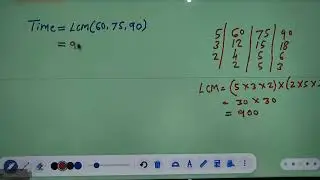 Time = LCM(60, 75, 90)
= 9
5 | 60 | 75 | 90
3 | 12 | 15 | 18
2 | 4 | 5 | 6
2 | 5 | 3
LCM = (5 × 3 × 2) × (2 × 5 ×
= 30 × 30
= 900